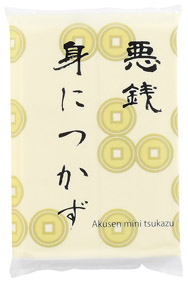 悪銭
身につかず
Akusen mini tsukazu